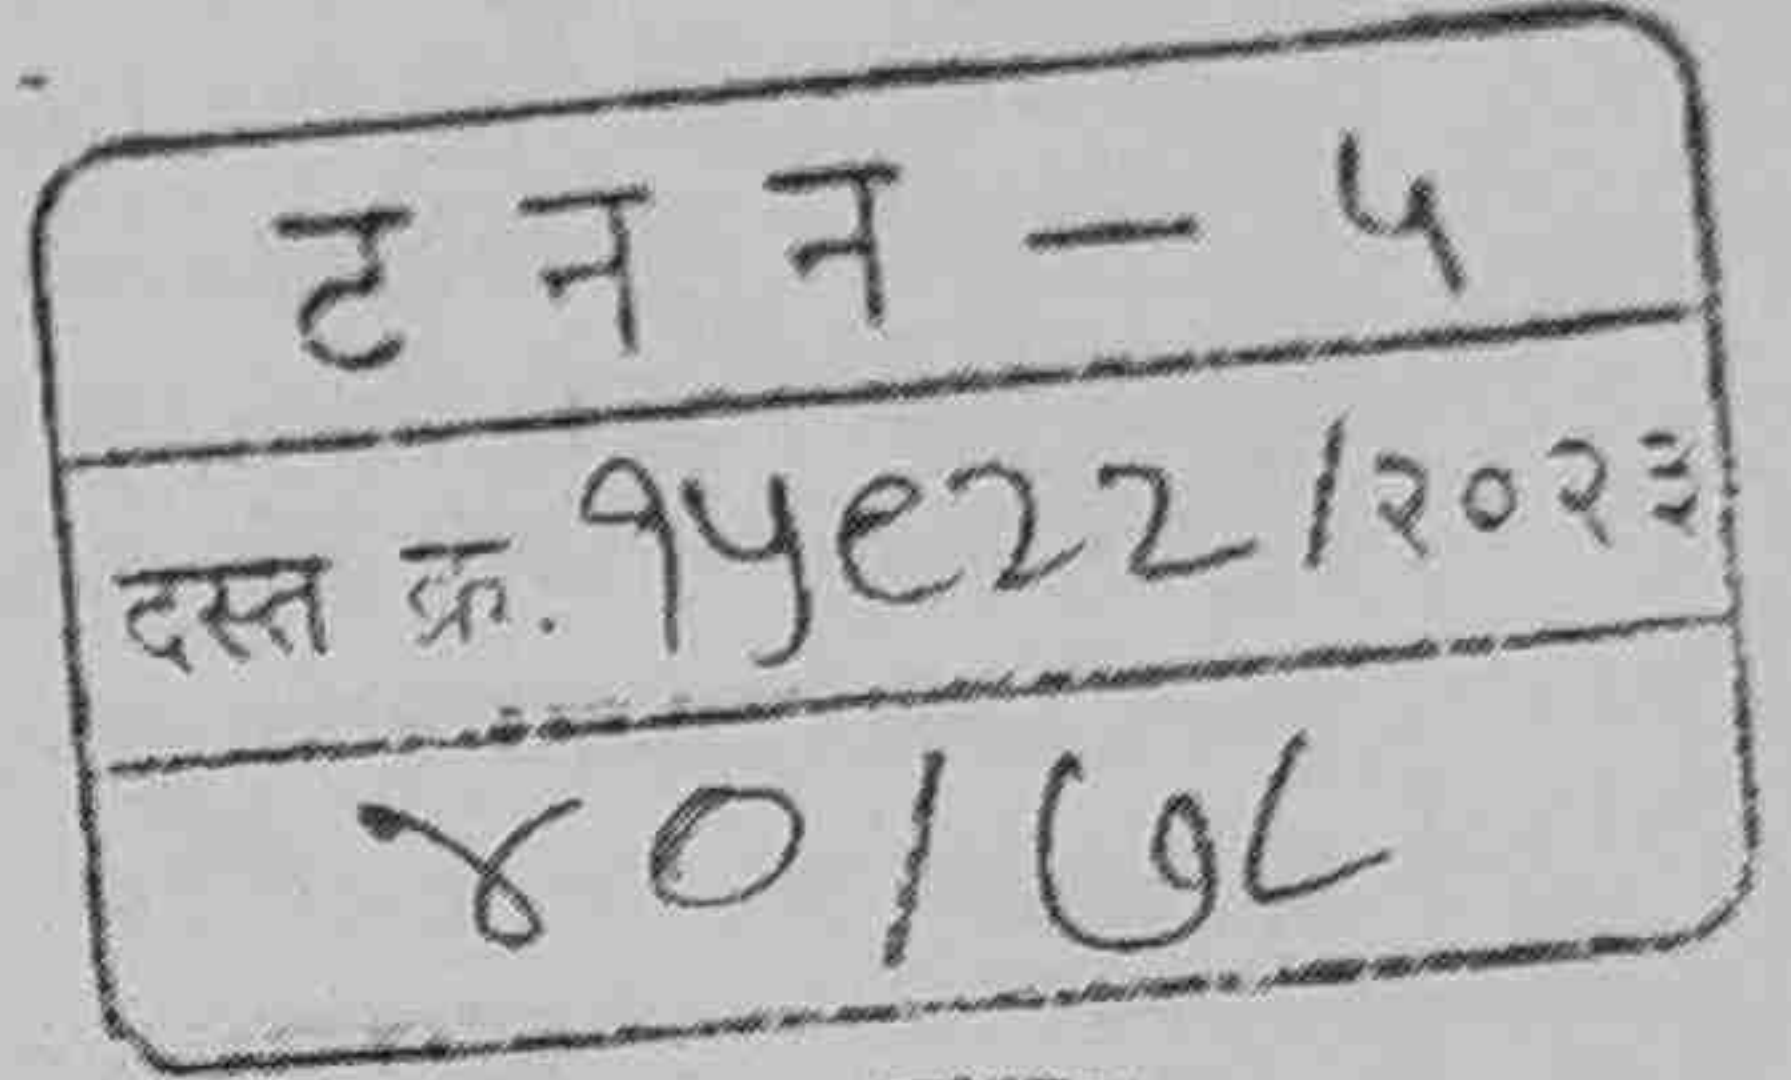 ट न न — ५
दस्त क्र. १५९२२/२०२३
४०/७८